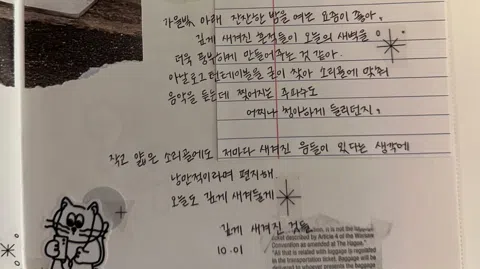 가을밤, 아래 잔잔한 밤을 여는 요즘이 좋아.
깊게 새겨진 흔적들이 오늘의 새벽을
더욱 풍부하게 만들어주는 것 같아.
아날로그 턴테이블을 굳이 찾아 소리골에 맞춰
음악을 듣는데 찢어지는 주파수도
어찌나 청아하게 들리던지.
작고 얇은 소리골에도 저마다 새겨진 음들이 있다는 생각에
낭만적이라며 편지해.
오늘도 깊게 새겨둘게
깊게 새겨진 것들.
10.01
tion, it is not the
total described by Article 4 of the Warsaw
Convention as amended at The Hague."
"All that is related with baggage is regulated
as the transportation ticket. Baggage will be
delivered to whoever presents the baggage